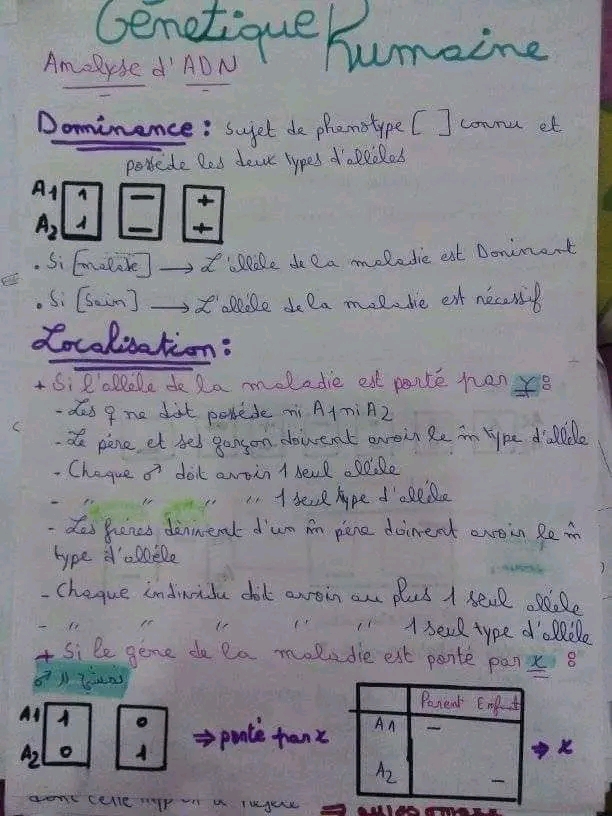 Génetique Humaine
Analyse d'ADN
Dominance : sujet de phenotype [ ] connu et
posséde les deux types d'alléles
A1 1 — +
A2 1 — +
. Si [malade] → L'alléle de la maladie est Dominant
. Si [Sain] → L'alléle de la maladie est récessif
Localisation :
+ Si l'alléle de la maladie est porté par Y :
- Les ♀ ne doit posséde ni A1 ni A2
- Le pére et ses garçon doivent avoir le m̂ type d'alléle
- Chaque ♂ doit avoir 1 seul alléle
- " " " " 1 seul type d'alléle
- Les fréres dérivent d'un m̂ pére doivent avoir le m̂
type d'alléle
- Chaque individu doit avoir au plus 1 seul alléle
- " " " " " 1 seul type d'alléle
+ Si le géne de la maladie est porté par X :
♂
A1 1 0
A2 0 1
⇒ porté par X
Parent Enfant
A1 —
A2 —
⇒ X
donc cette hyp